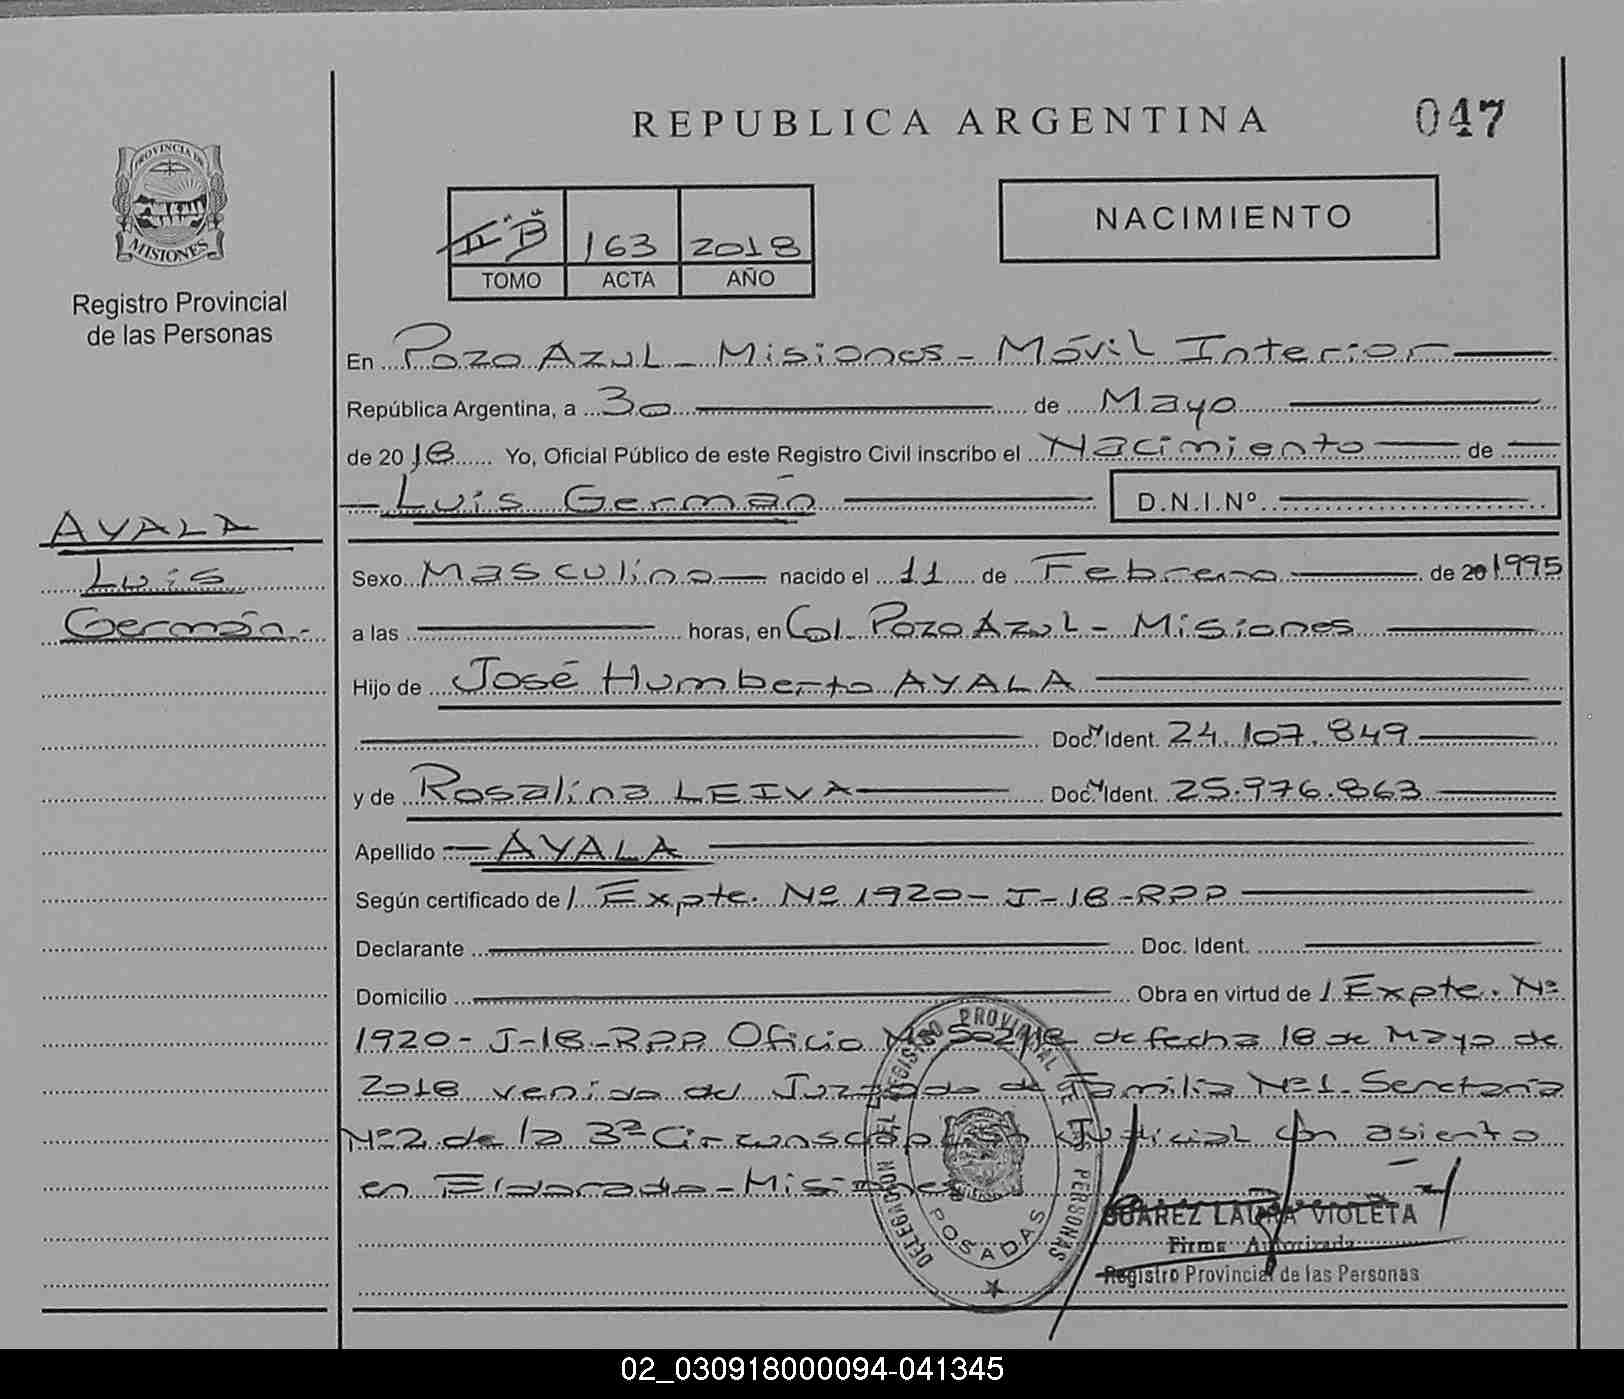 REPUBLICA ARGENTINA
047
PROVINCIA DE
MISIONES
Registro Provincial
de las Personas
II "B" 163 2018
TOMO ACTA AÑO
NACIMIENTO
En Pozo Azul - Misiones - Móvil Interior
República Argentina, a 30 de Mayo
de 2018 Yo, Oficial Público de este Registro Civil inscribo el Nacimiento de
Luis Germán D.N.I.Nº
AYALA
Luis
Germán.-
Sexo Masculino nacido el 11 de Febrero de 20 1995
a las horas, en Col. Pozo Azul - Misiones
Hijo de José Humberto AYALA
Doc. M Ident. 24.107.849
y de Rosalina LEIVA Doc. M Ident. 25.976.863
Apellido AYALA
Según certificado de / Expte. Nº 1920- J-18-RPP
Declarante Doc. Ident.
Domicilio Obra en virtud de / Expte. Nº
1920- J-18-RPP Oficio Nº de fecha 18 de Mayo de
2018 venido del Juzgado de Familia Nº1- Secretaría
Nº2 de la 3ª Circunscripción Judicial con asiento
en Eldorado - Misiones
DELEGACION DEL REGISTRO PROVINCIAL DE LAS PERSONAS
POSADAS
SUAREZ LAURA VIOLETA
Firma Autorizada
Registro Provincial de las Personas
02_030918000094-041345